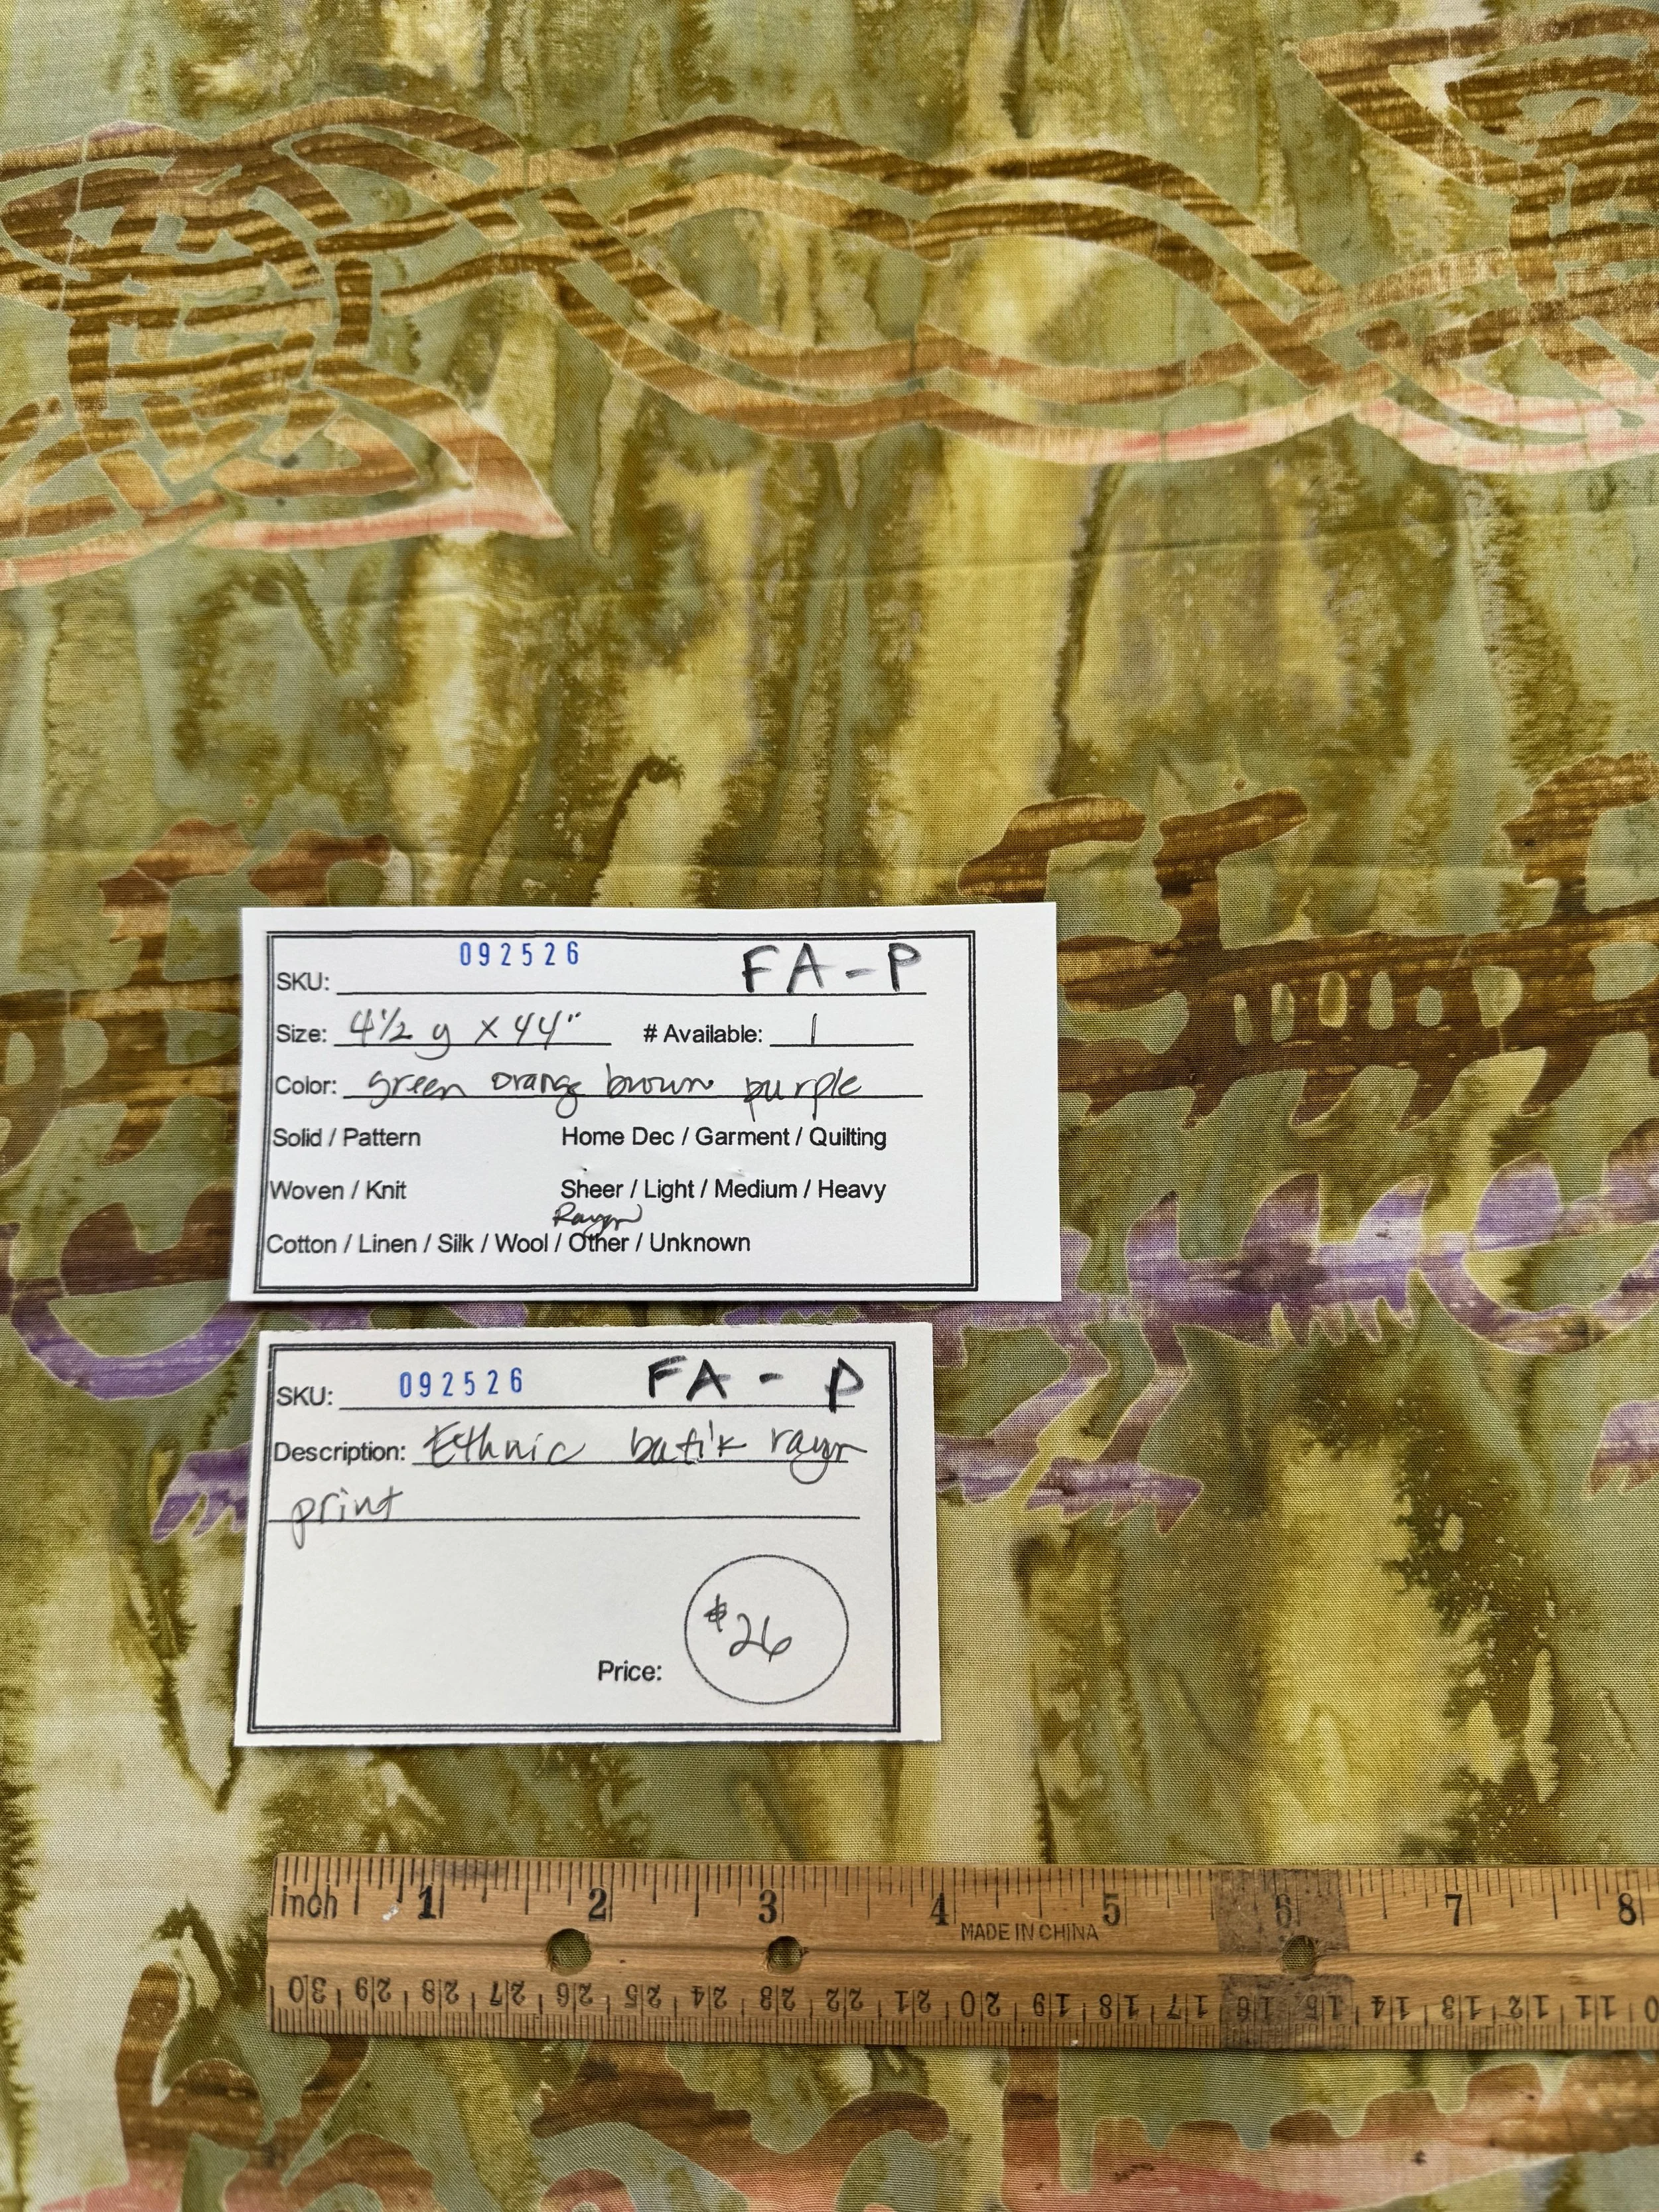 SKU: 092526 FA-P
Size: 4½ y x 44" # Available: 1
Color: green orange brown purple
Solid / Pattern Home Dec / Garment / Quilting
Woven / Knit Sheer / Light / Medium / Heavy
Rayon
Cotton / Linen / Silk / Wool / Other / Unknown
SKU: 092526 FA - P
Description: Ethnic batik rayon
print
$26
Price:
inch 1 2 3 4 5 6 7 8
MADE IN CHINA
30 29 28 27 26 25 24 23 22 21 20 19 18 17 16 15 14 13 12 11 10